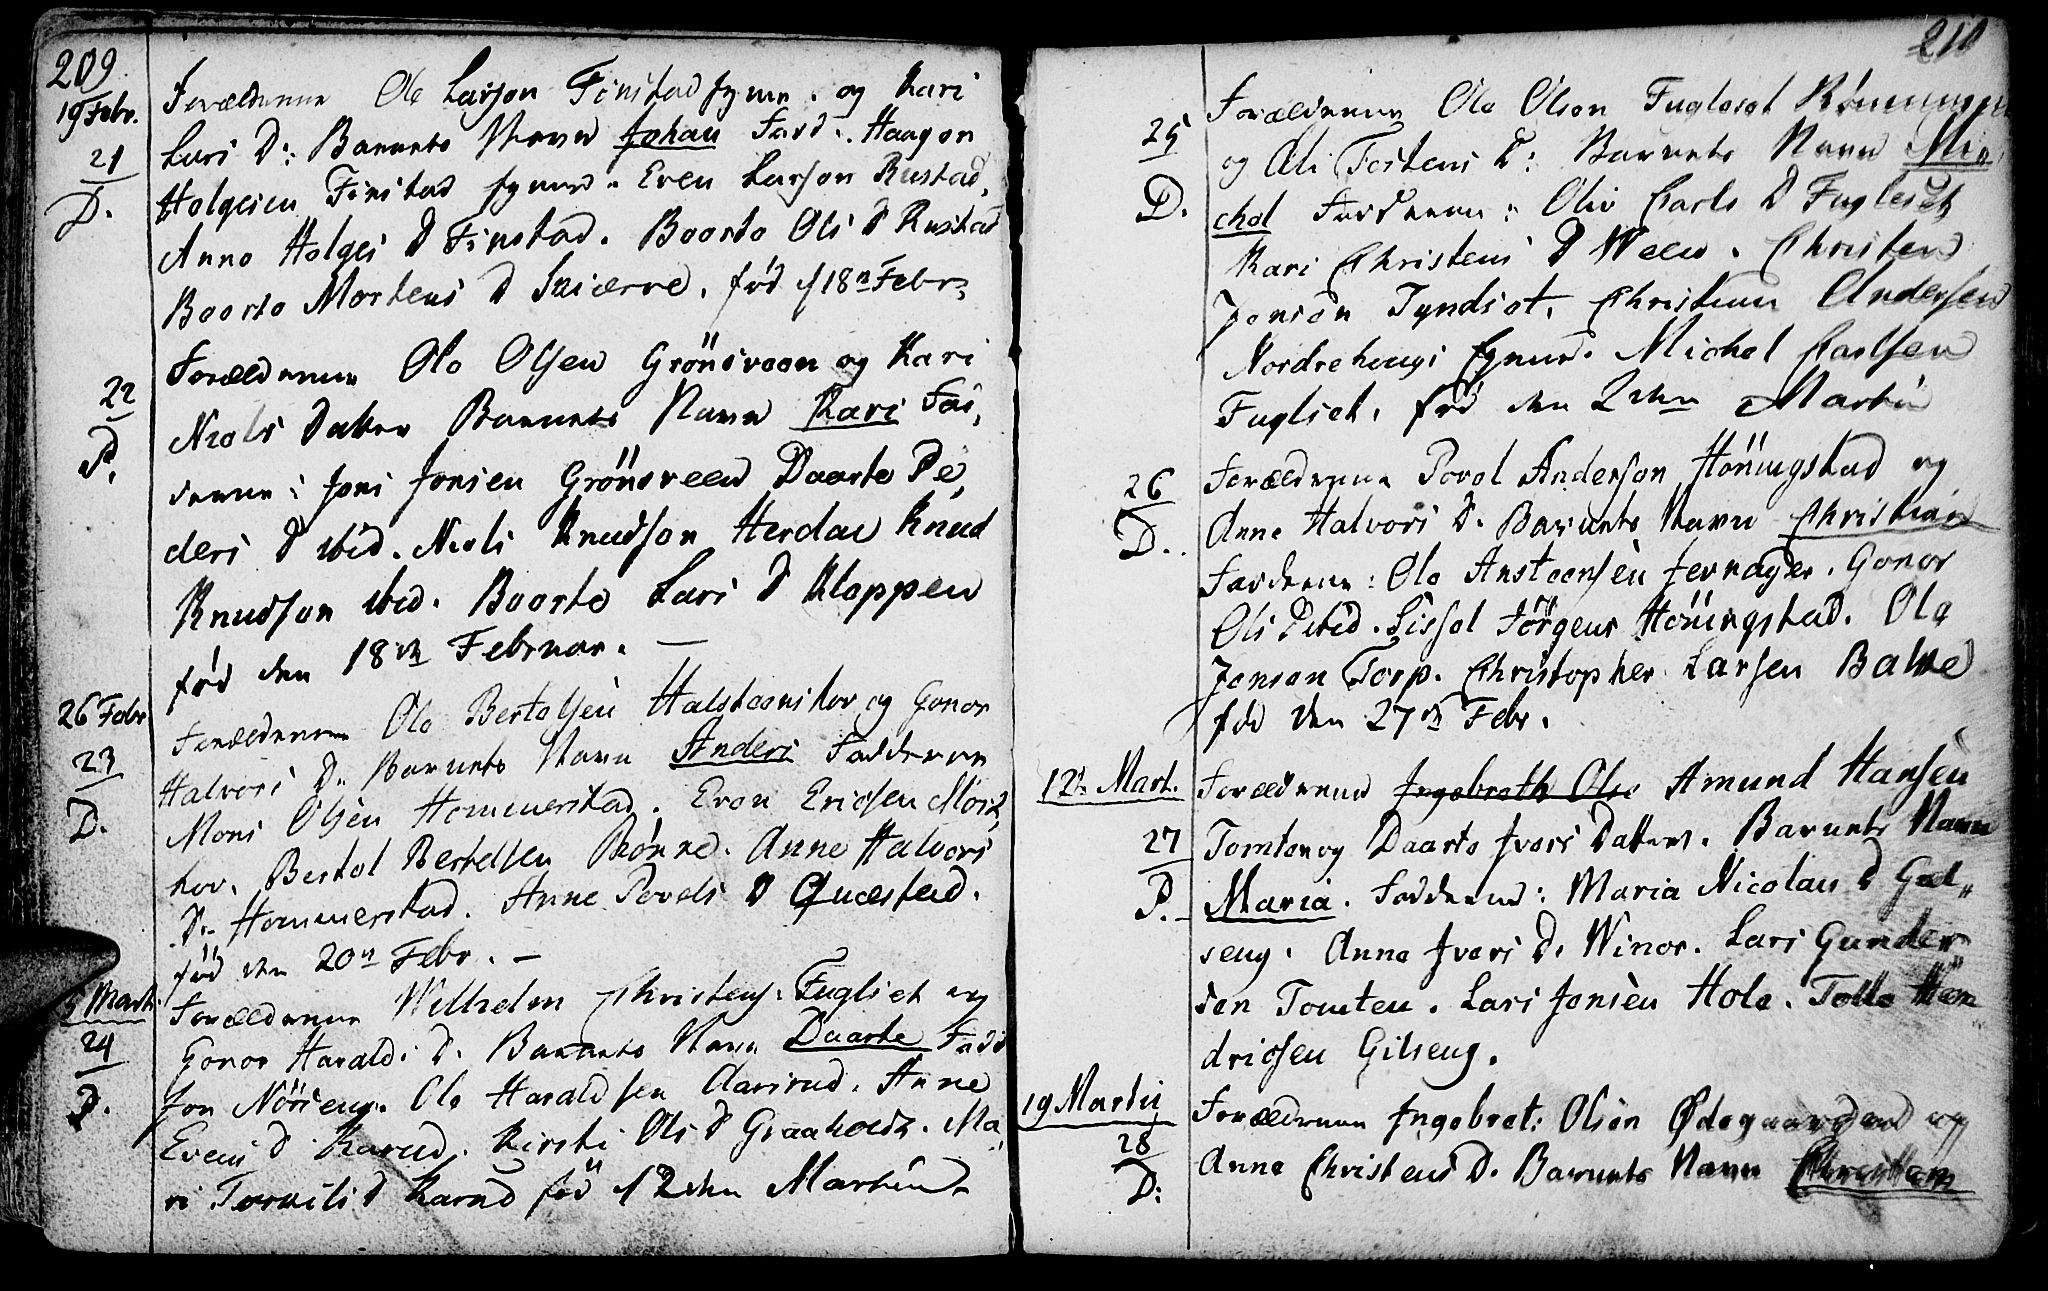 209
19 Febr.
21
D.
Forældrene Ole Larson Finstad Eyene. og Kari
Lars D: Barnets Navn Johan Fadd. Haagon
Holgesen Finstad Eyene. Even Larson Rustad,
Anne Holges D Finstad. Boorte Ols D Rustad
Boorte Mortens D Skiærve. fød d 18n Febr.
22
D.
Forældrene Ole Olsen Grönsveen og Kari
Niels Datter Barnets Navn Kari Fad,
derne: Jens Jensen Grönsveen Daarte Pe,
ders D ibid. Niels Knudson Herdal Knud
Knudson ibid. Boorte Lars D Kloppen
fød den 18de Februar. —
26 Febr
23
D.
Forældrene Ole Bertelsen Halsteenshov og Gonor
Halvors D. Barnets Navn Anders Fadderne
Mons Olsen Hommerstad. Even Ericsen Mörk
hov. Bertel Bertelsen Rønne. Anne Halvors
D. Hommerstad. Anne Povels D Quæstad.
fød den 20n Febr. —
5 Marti
24
D.
Forældrene Wilhelm Christens. Fugliet og
Gonor Haralds D. Barnets Navn Daarte Fadd
Jon Nörseng. Ole Haraldsen Aarsrud. Anne
Evens D Karud. Kirsti Ols D Graaholdt. Ma,
ri Torkils D Karud fød 12den Martii
210
25
D.
Forældrene Ole Olson Fugleset Rønningen
og Ali Tostens D: Barnets Navn Mi,
chel Fadderne: Oliv Carls D Fugleset
Kari Christens D Ween. Christen
Jenson Tyndset. Christian Andersen
Nordrehougs Eyene. Michel Carlsen
Fugliet. fød den 2den Martii
26
D.
Forældrene Povel Anderson Höningstad og
Anne Halvors D. Barnets Navn Christian
Fadderne: Ole Ansteensen Jernager. Gonor
Ols D ibid. Sissel Jörgens Höningstad. Ole
Jenson Torp. Christopher Larsen Balke
fød den 27de Febr.
12. Mart.
27
D.
Forældrene Ingebreth Olse Amund Hansen
Tomten og Daarte Ivers Datter. Barnets Navn
Maria. Fadderne: Maria Nicolai D Gal,,
seng. Anne Ivers D. Winor. Lars Gunder,,
sen Tomten. Lars Jensen Hole. Tolle Hen
dricsen Gilseng.
19 Martii
28
D:
Forældrene Ingebret: Olsen Ødegaarden og
Anne Christens D. Barnets Navn Christian